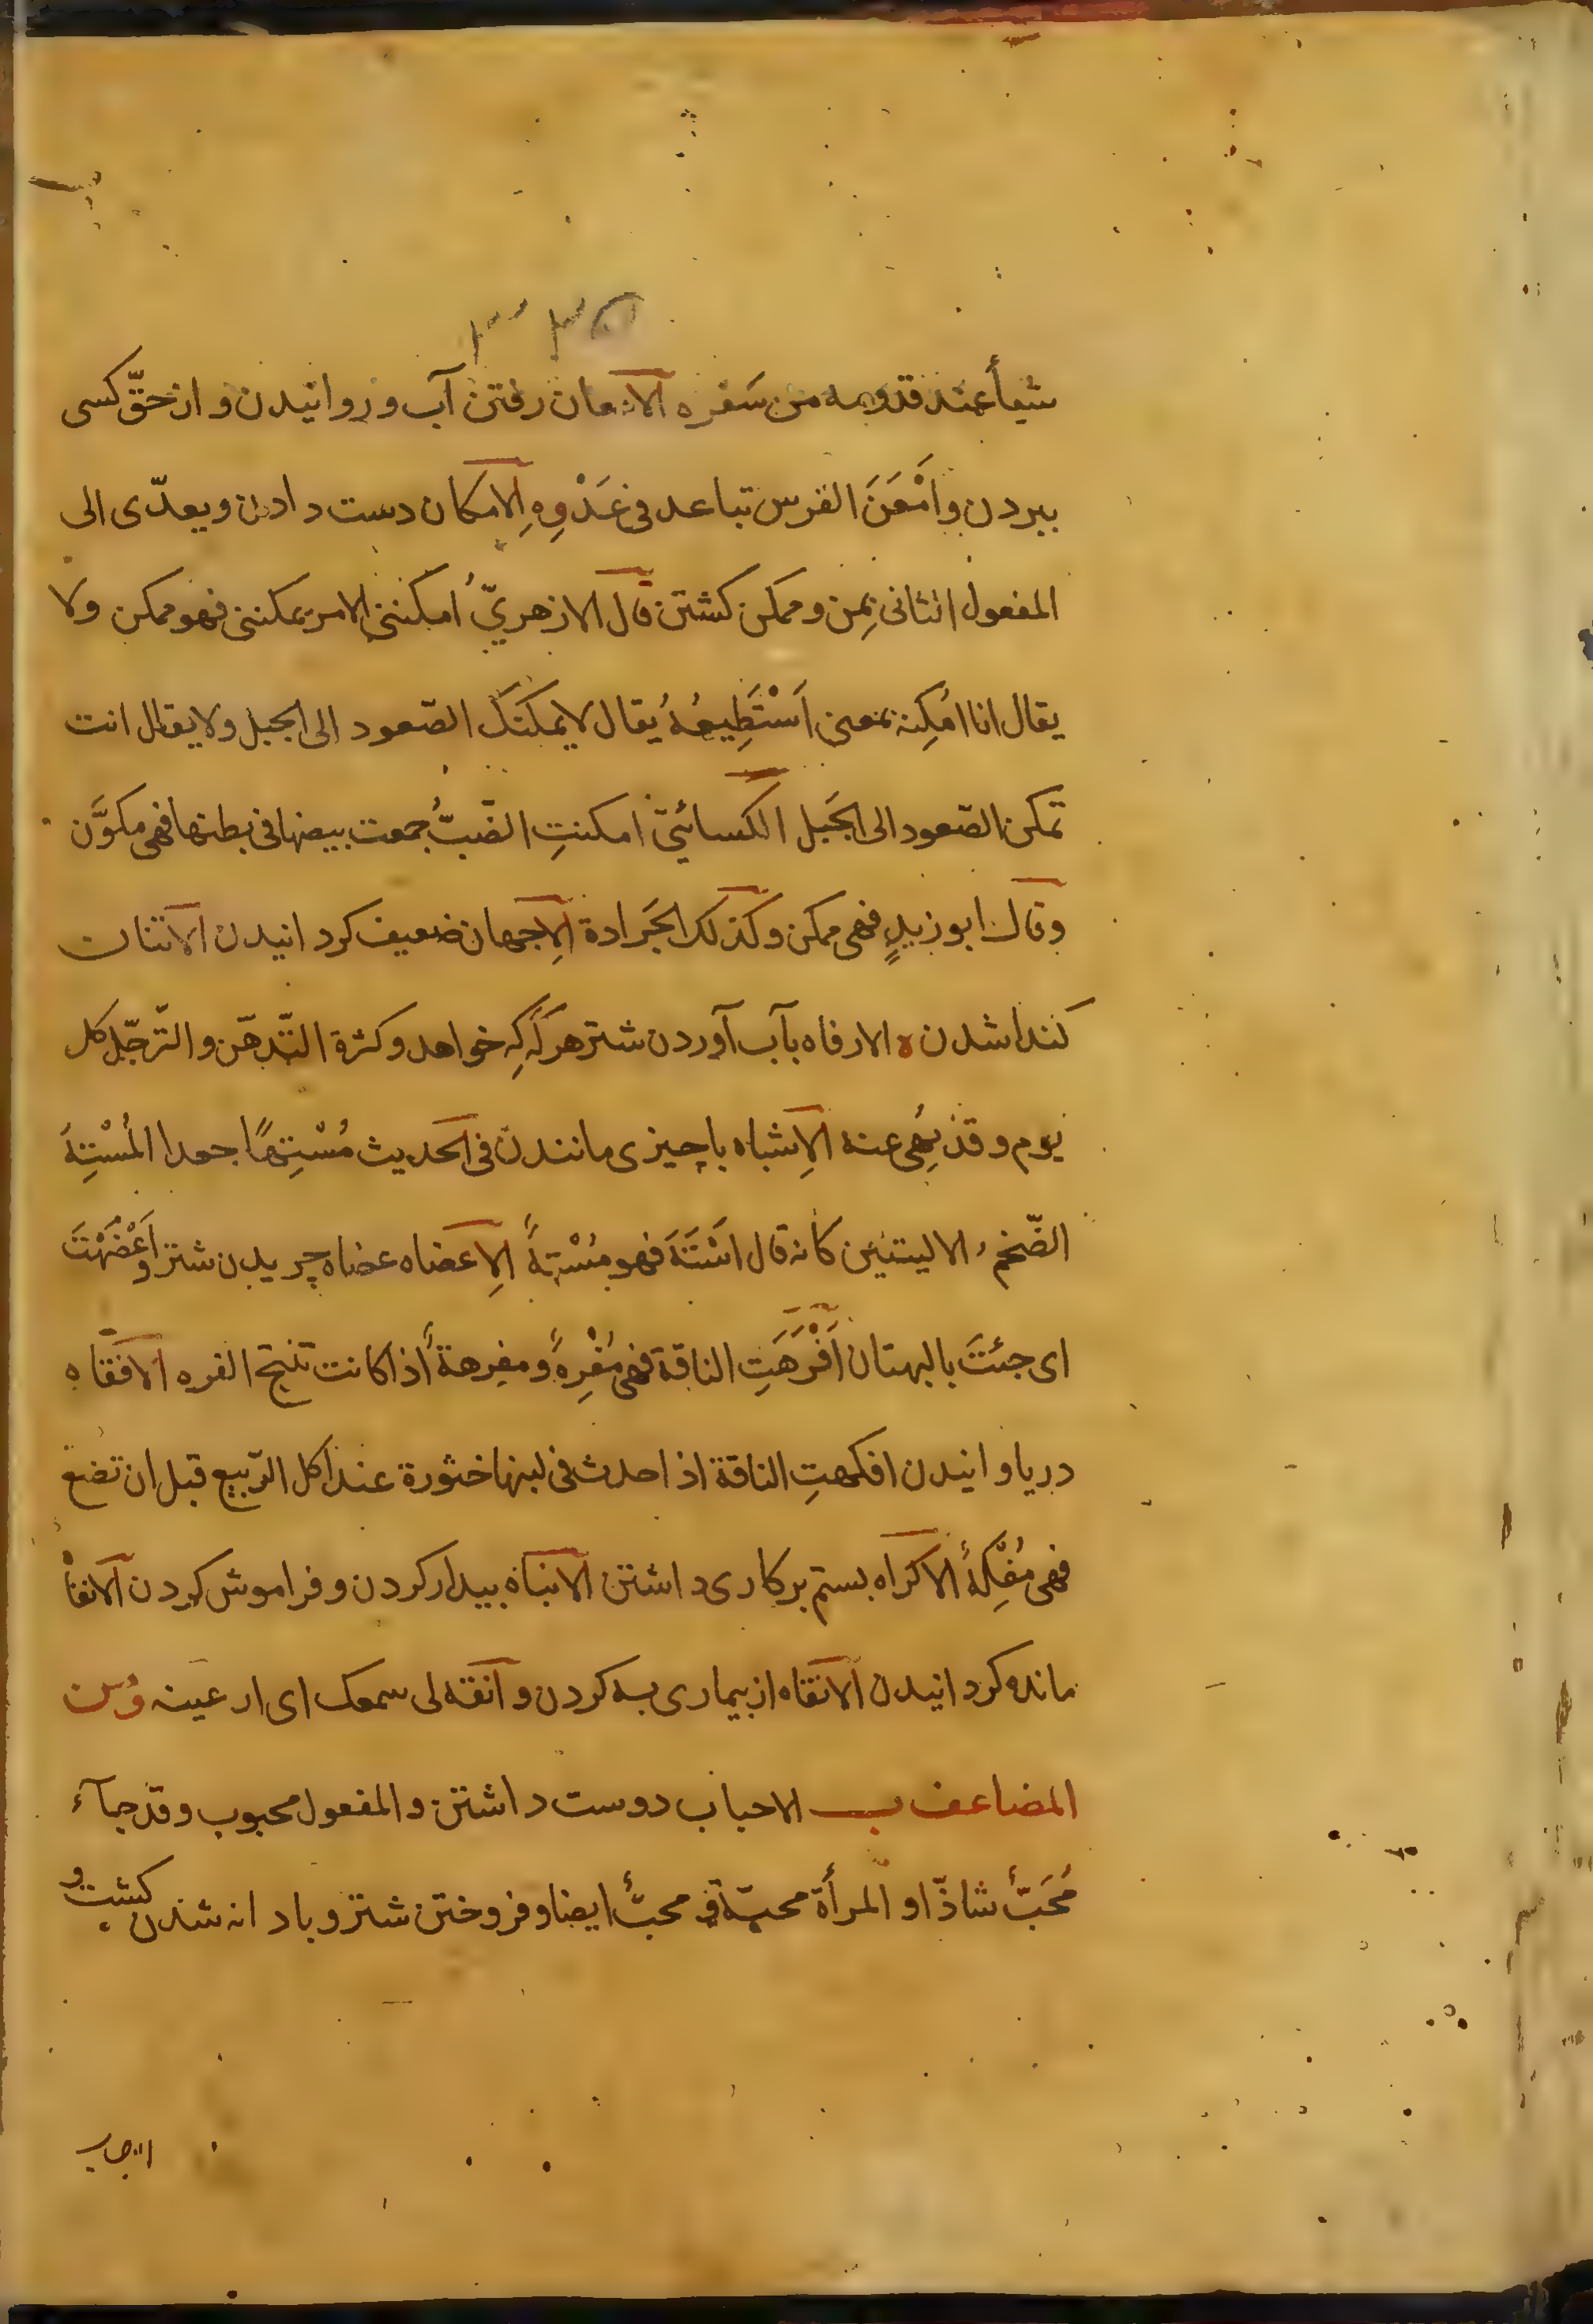 ۳۳۵
شيأ عند قدومه من سَفره الامعان رفتن آب و روانيدن و از حقّ كسى
ببردن وامْعَنَ الفرس تباعد فى عَدْوِهِ الِامكان دست دادن ويعدّى الى
المفعول الثانى بمِن وممكن كشتن قال الازهريّ امكننى الامر يمكننى فهو ممكن ولا
يقال انا امُكِنه بمعنى اَسْتَطِيعُهُ يُقال لا يمكنكَ الصّعود الى الجبل ولا يقال انت
تمكن الصّعود الى الجَبل الكسائيّ امكنتِ الضّبُّ جمعت بيضها فى بطنها فهى مكوَّن
وقال ابو زيدٍ فهى ممكن وكذلك الجَرادة الِاجهان ضعيف كردانيدن الانتان
كندا شدن ه الارفاه بآب آوردن شتر هركَه كِه خواهد وكثرة التّدهّن والتّرجّل كل
يوم وقد نُهِى عنه الِاشباه باچيزى مانندن فى الحديث مُسْتِهًا جعدا المُسْتِهَ
الضّخمُ الاليتين كانه قال اَسْتَهَ فهو مُسْتِهٌ الِاعضاه عضاه چريدن شتر و اَعْضَهْتَ
اى جئتَ بالبهتان اَفْرَهَتِ الناقة فهى مُفْرِهٌ ومفرهةٌ اذا كانت تنتج الفره الافقاه
درياوانيدن افكهتِ الناقة اذا حدث فى لبنها خثورة عند اكل الرّبيع قبل ان تضع
فهى مُفْكِهٌ الاكراه بستم بر كارى داشتن الانباه بيدار كردن وفراموش كردن الانفاه
مانده كردانيدن الانقاه از بيمارى به كردن وانقه لى سمعك اى ارعينه ومن
المضاعف ب الاحباب دوست داشتن والمفعول محبوب وقد جآء
مُحَبٌّ شاذّا و المرأة محبّة و محبٌّ ايضا وفروختن شتر وبا دانه شدن كشت و